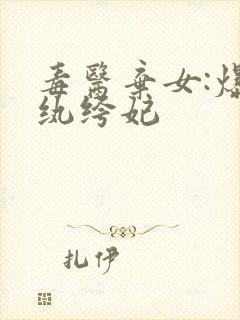 毒醫棄女:爆
纨绔妃
扎伊